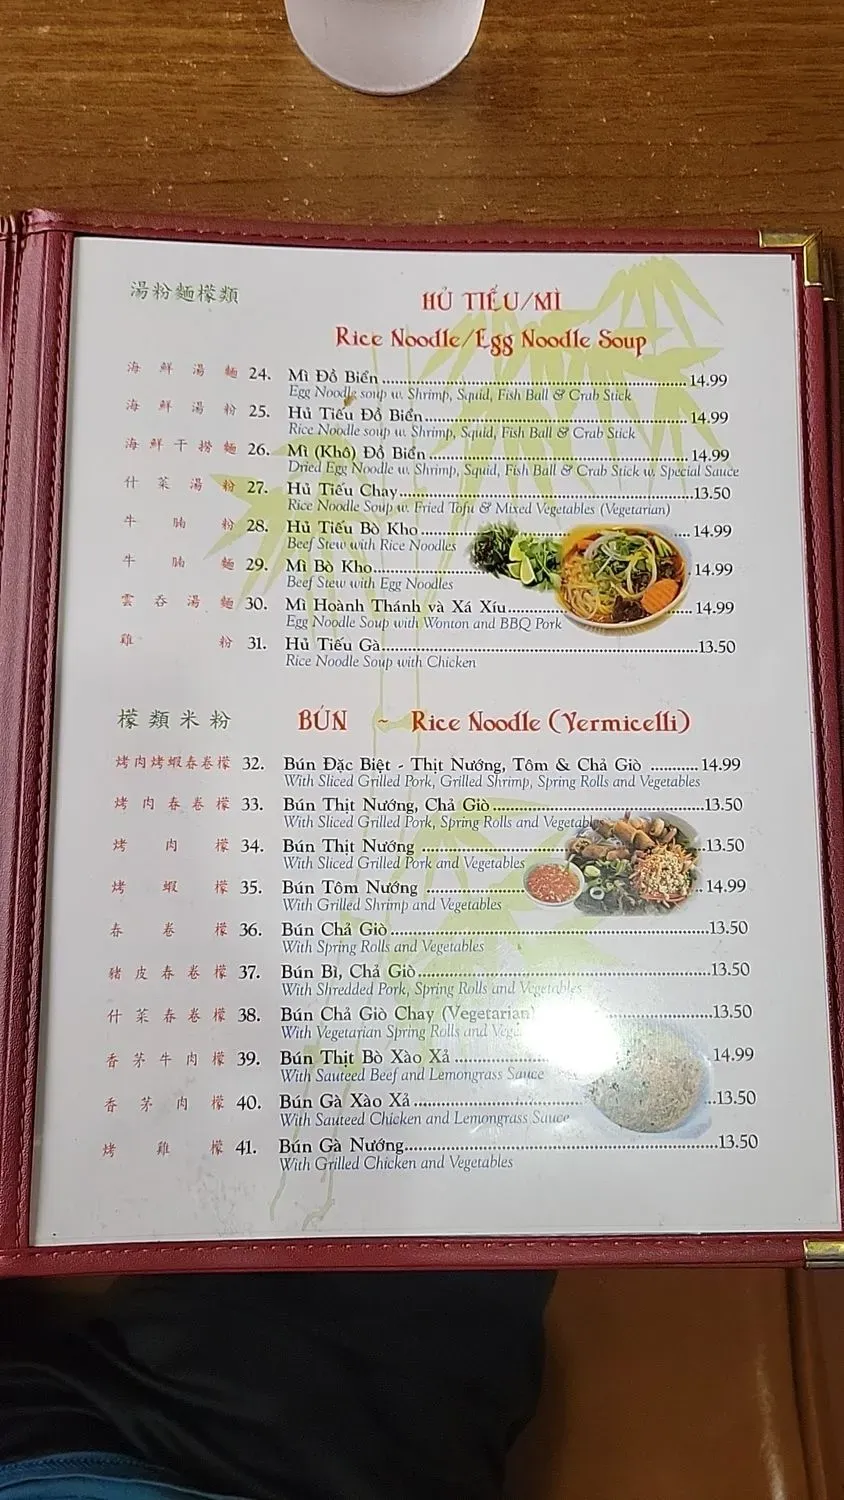 湯粉麵檬類
HỦ TIẾU/MÌ
Rice Noodle/Egg Noodle Soup
海鮮湯麵 24. Mì Đồ Biển ........ 14.99
Egg Noodle soup w. Shrimp, Squid, Fish Ball & Crab Stick
海鮮湯粉 25. Hủ Tiếu Đồ Biển ........ 14.99
Rice Noodle soup w. Shrimp, Squid, Fish Ball & Crab Stick
海鮮干撈麵 26. Mì (Khô) Đồ Biển ........ 14.99
Dried Egg Noodle w. Shrimp, Squid, Fish Ball & Crab Stick w. Special Sauce
什菜湯粉 27. Hủ Tiếu Chay ........ 13.50
Rice Noodle Soup w. Fried Tofu & Mixed Vegetables (Vegetarian)
牛腩粉 28. Hủ Tiếu Bò Kho ........ 14.99
Beef Stew with Rice Noodles
牛腩麵 29. Mì Bò Kho ........ 14.99
Beef Stew with Egg Noodles
雲吞湯麵 30. Mì Hoành Thánh và Xá Xíu ........ 14.99
Egg Noodle Soup with Wonton and BBQ Pork
雞粉 31. Hủ Tiếu Gà ........ 13.50
Rice Noodle Soup with Chicken
檬類米粉
BÚN ~ Rice Noodle (Vermicelli)
烤肉烤蝦春卷檬 32. Bún Đặc Biệt - Thịt Nướng, Tôm & Chả Giò ........ 14.99
With Sliced Grilled Pork, Grilled Shrimp, Spring Rolls and Vegetables
烤肉春卷檬 33. Bún Thịt Nướng, Chả Giò ........ 13.50
With Sliced Grilled Pork, Spring Rolls and Vegetables
烤肉檬 34. Bún Thịt Nướng ........ 13.50
With Sliced Grilled Pork and Vegetables
烤蝦檬 35. Bún Tôm Nướng ........ 14.99
With Grilled Shrimp and Vegetables
春卷檬 36. Bún Chả Giò ........ 13.50
With Spring Rolls and Vegetables
豬皮春卷檬 37. Bún Bì, Chả Giò ........ 13.50
With Shredded Pork, Spring Rolls and Vegetables
什菜春卷檬 38. Bún Chả Giò Chay (Vegetarian) ........ 13.50
With Vegetarian Spring Rolls and
香茅牛肉檬 39. Bún Thịt Bò Xào Xả ........ 14.99
With Sauteed Beef and Lemongrass Sauce
香茅肉檬 40. Bún Gà Xào Xả ........ 13.50
With Sauteed Chicken and Lemongrass Sauce
烤雞檬 41. Bún Gà Nướng ........ 13.50
With Grilled Chicken and Vegetables